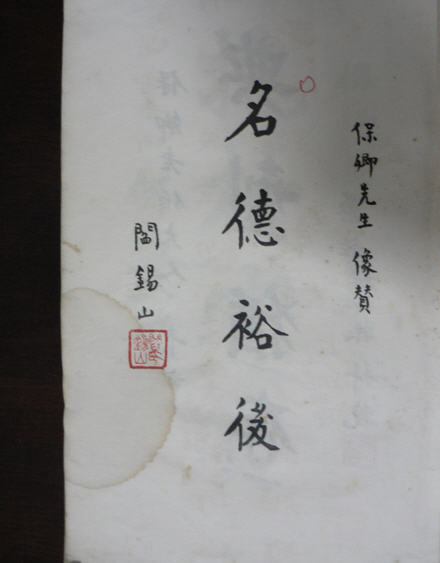 保卿先生像赞
名德裕後
閻錫山